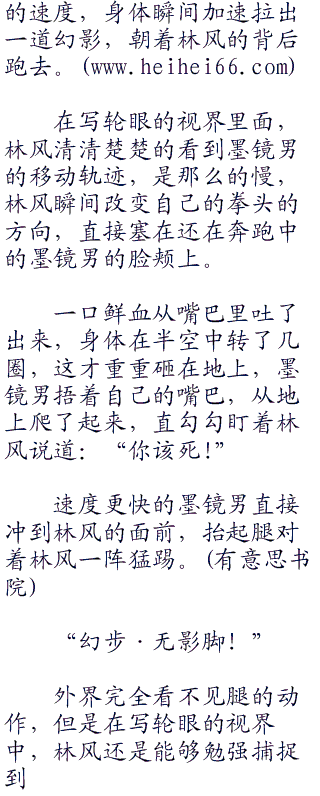 的速度，身体瞬间加速拉出
一道幻影，朝着林风的背后
跑去。(www.heihei66.com)
在写轮眼的视界里面，
林风清清楚楚的看到墨镜男
的移动轨迹，是那么的慢，
林风瞬间改变自己的拳头的
方向，直接塞在还在奔跑中
的墨镜男的脸颊上。
一口鲜血从嘴巴里吐了
出来，身体在半空中转了几
圈，这才重重砸在地上，墨
镜男捂着自己的嘴巴，从地
上爬了起来，直勾勾盯着林
风说道：“你该死!”
速度更快的墨镜男直接
冲到林风的面前，抬起腿对
着林风一阵猛踢。(有意思书
院)
“幻步·无影脚！”
外界完全看不见腿的动
作，但是在写轮眼的视界
中，林风还是能够勉强捕捉
到